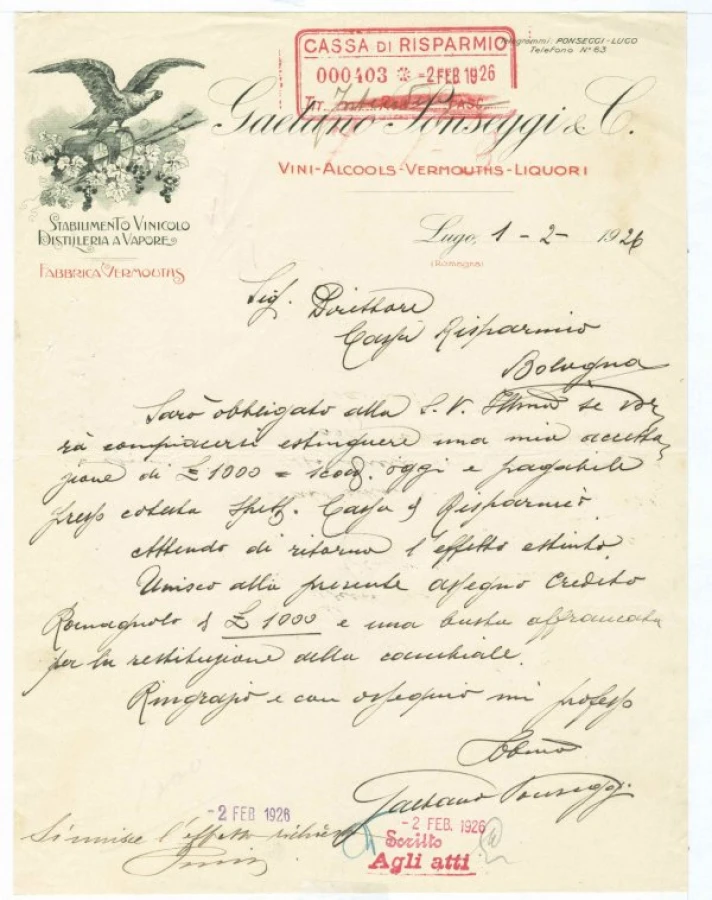 Telegrammi: PONSEGGI-LUGO
Telefono N° 63
CASSA DI RISPARMIO
000403 -2 FEB 1926
TIT. FASC.
Gaetano Ponseggi & C.
VINI-ALCOOLS-VERMOUTHS-LIQUORI
STABILIMENTO VINICOLO
DISTILLERIA A VAPORE
FABBRICA VERMOUTHS
Lugo, 1-2-1926
(Romagna)
Sig. Direttore
Cassa Risparmio
Bologna
Sarò obbligato alla S. V. Ill.ma se vor-
rà compiacersi estinguere una mia accetta-
zione di £ 1000 = scad. oggi e pagabile
presso cotesta Spett. Cassa di Risparmio.
Attendo di ritorno l'effetto estinto.
Unisco alla presente assegno Credito
Romagnolo di £ 1000 e una busta affrancata
per la restituzione della cambiale.
Ringrazio e con ossequio mi professo
Obb.mo
Gaetano Ponseggi
-2 FEB 1926
-2 FEB. 1926
Si unisce l'effetto
Scritto
Agli atti